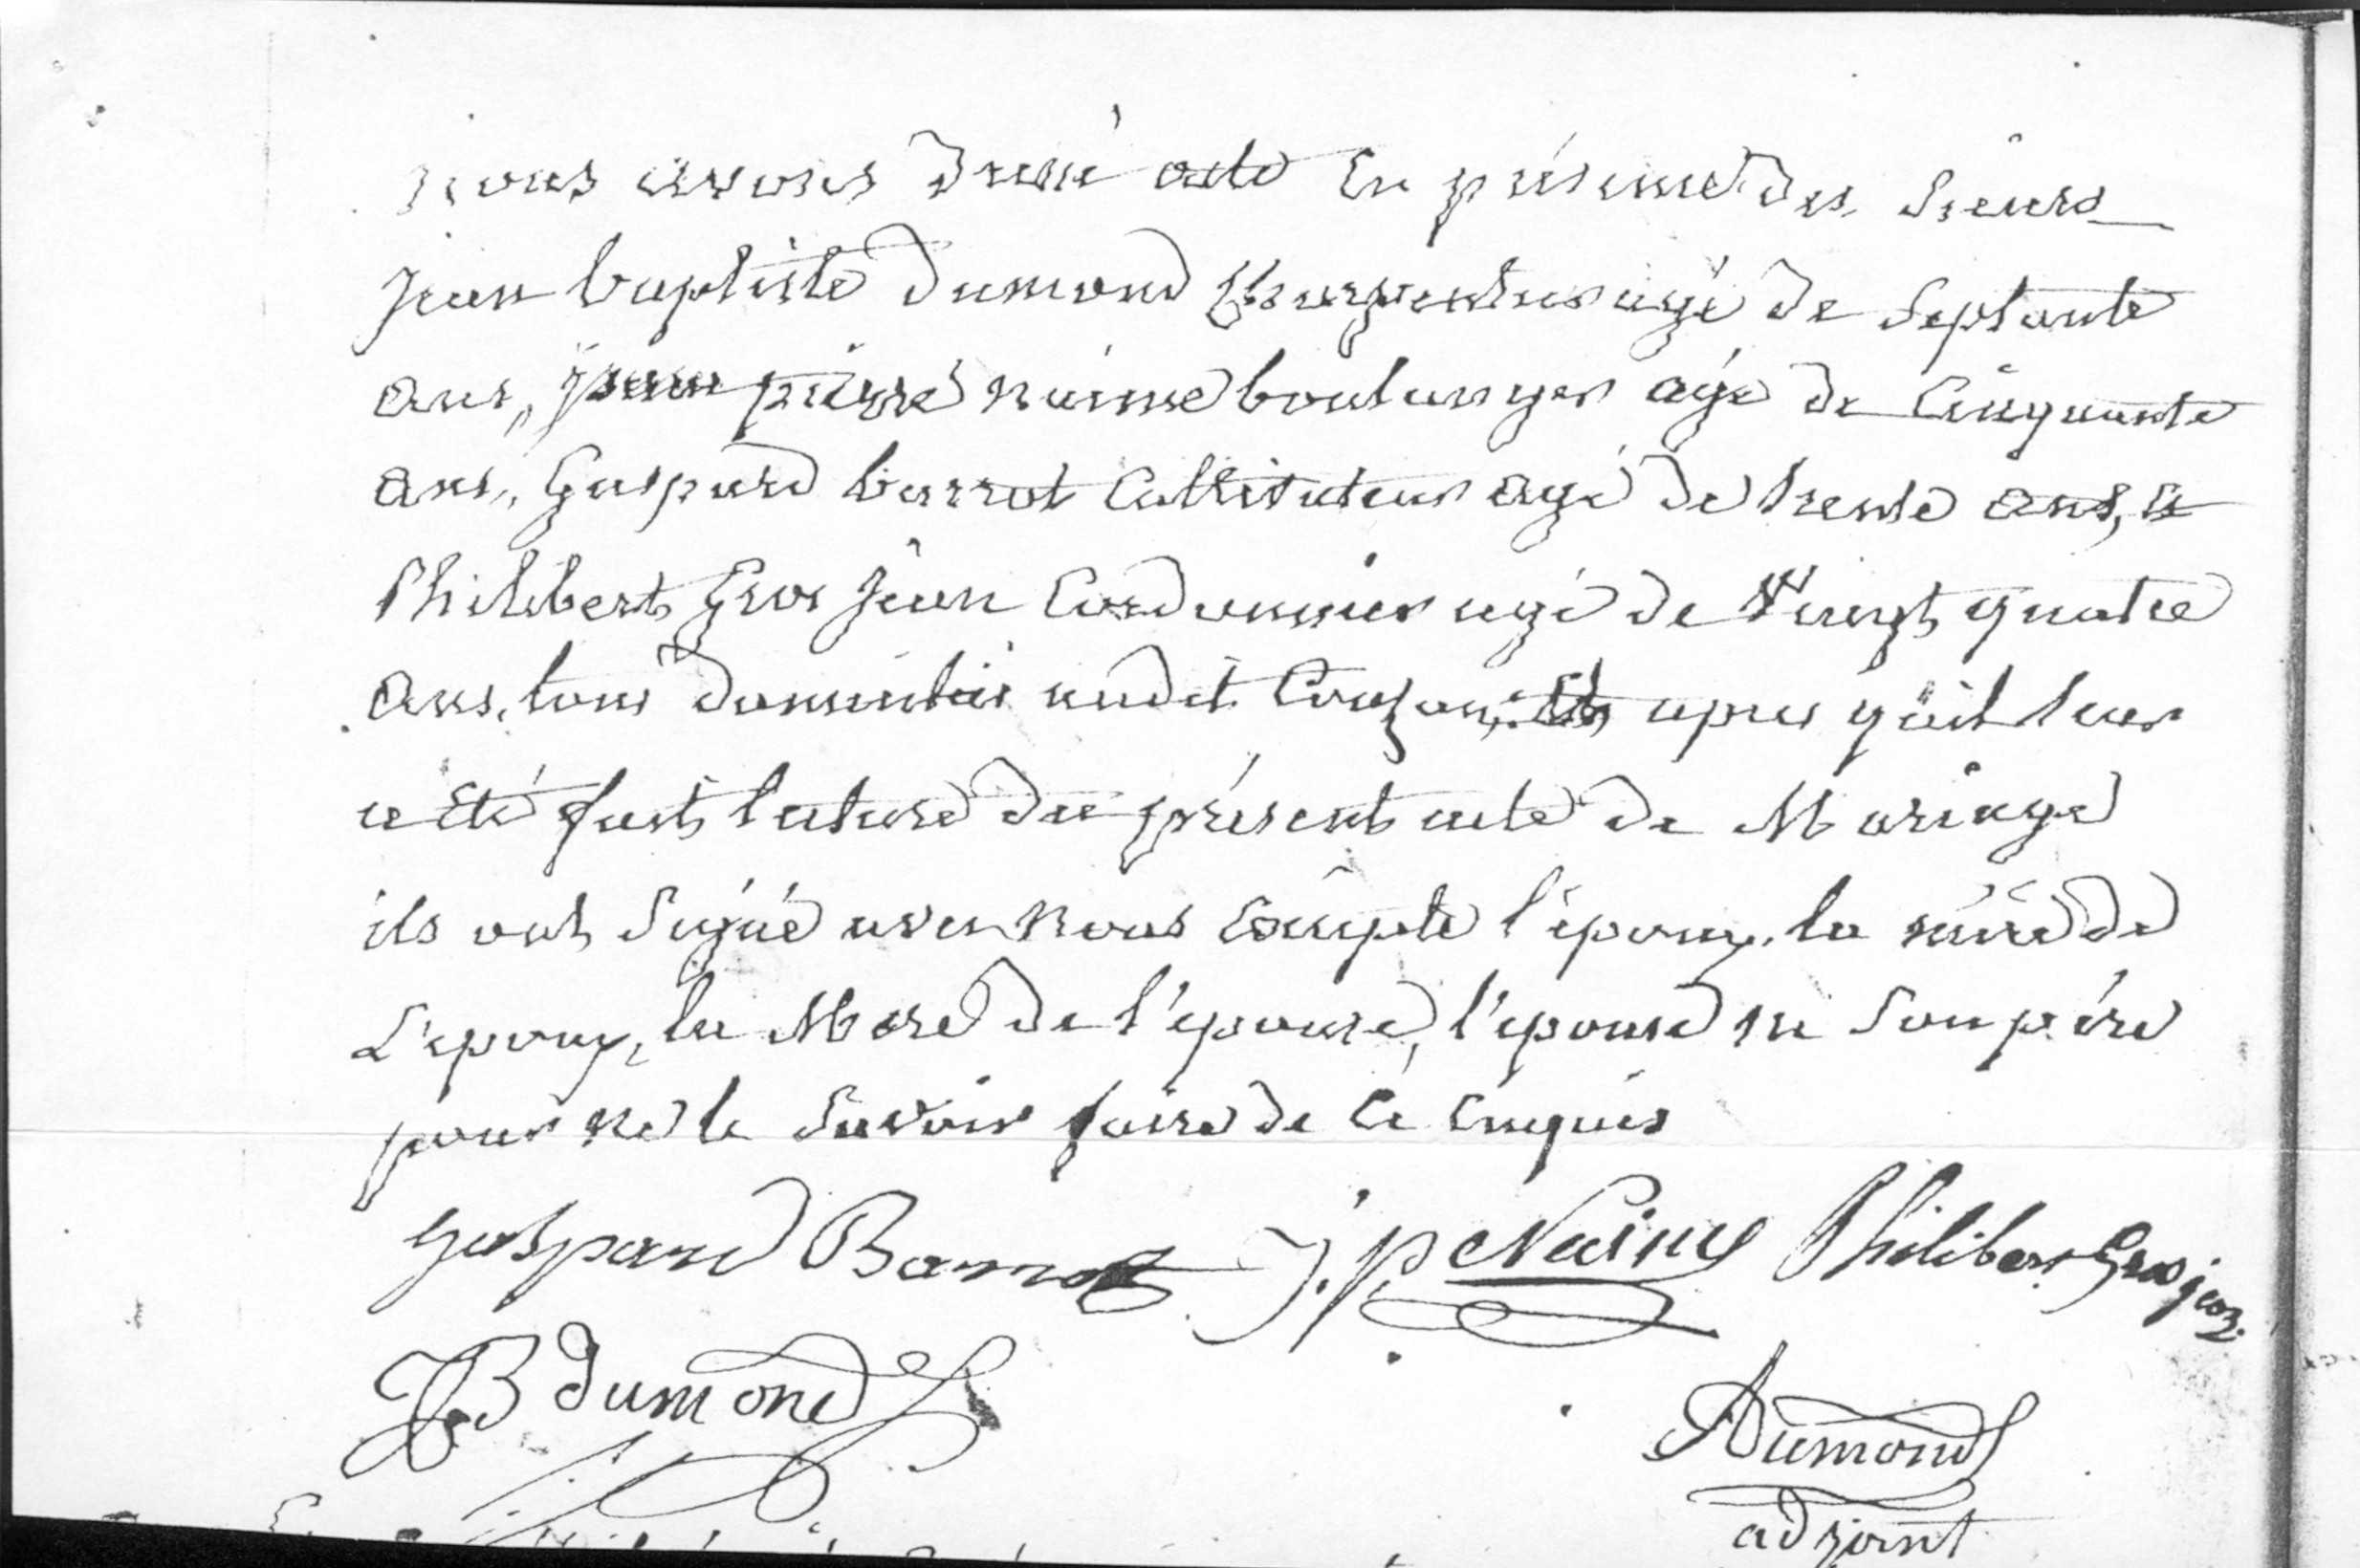 nous avons dressé acte En présence des Sieurs
jean baptiste dumond Charpentier agé de Septante
ans, jean pierre naime boulanger agé de Cinquante
ans, Gaspard barrot Cultivateur agé de trente ans, et
Philibert Gros jean Cordonnier agé de Vingt quatre
ans, tous domiciliés audit Couzon, Et apres qu'il leur
a été fait lecture du présent acte de Mariage
ils ont Signé avec Nous Excepté l'epoux, la mère de
L'epoux, la Mere de l'epouse, l'epouse ni Son père
pour ne le Savoir faire de Ce Enquis
gaspard Barrot J. p. Naime Philibert Grosjean
JB dumond
Dumond
adjoint